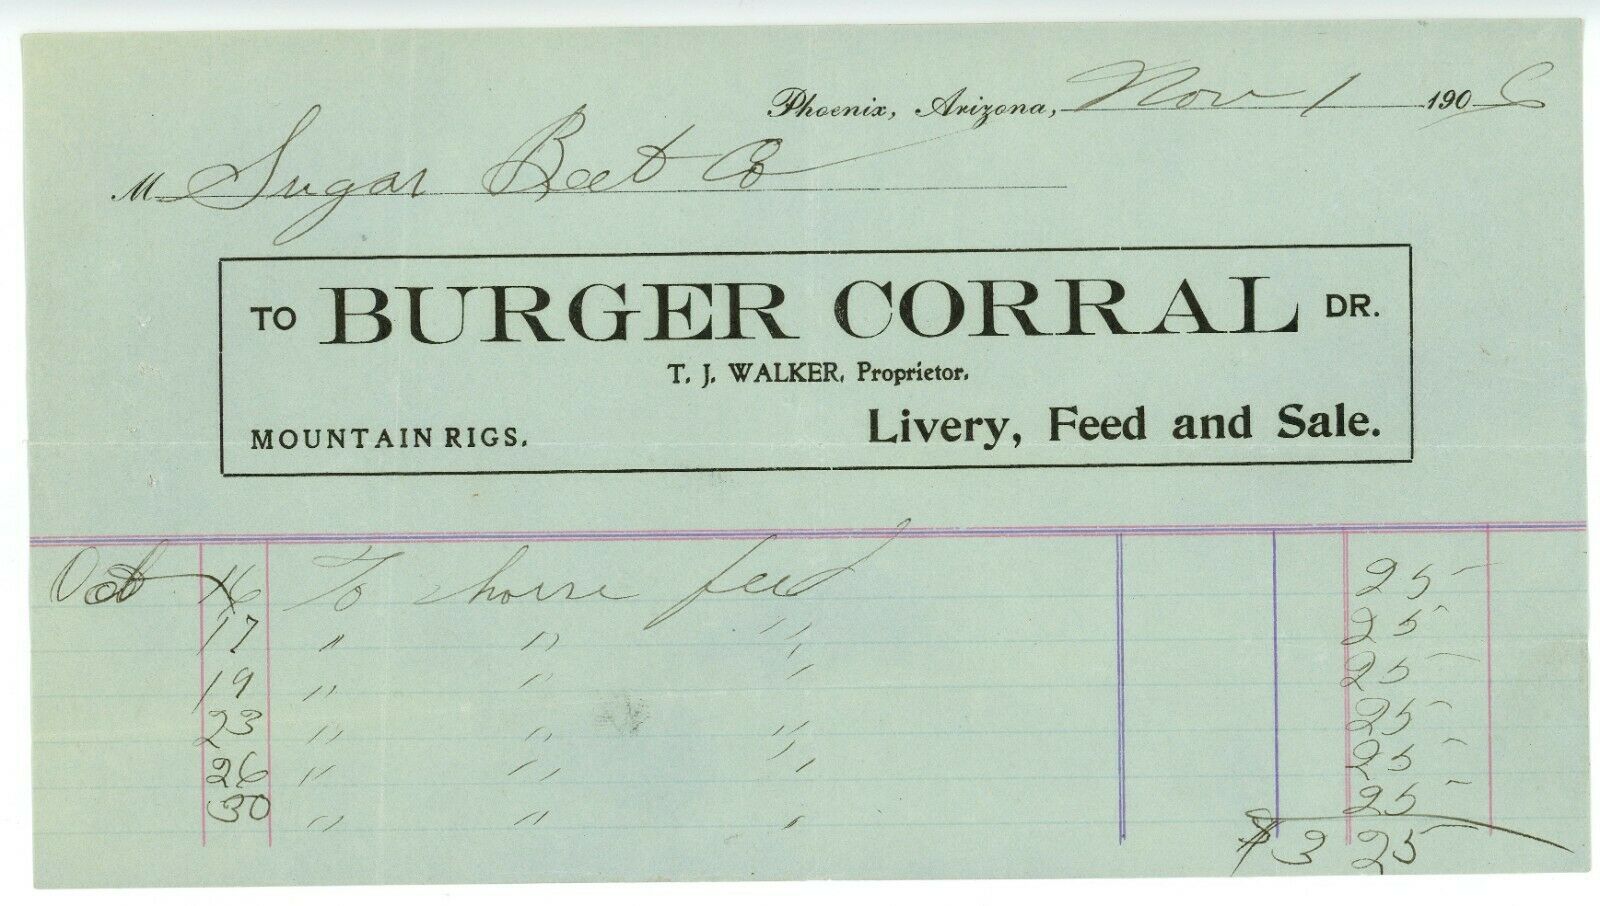 Phoenix, Arizona, Nov 1 1906
M Sugar Beet Co
TO BURGER CORRAL DR.
T. J. WALKER, Proprietor.
MOUNTAIN RIGS. Livery, Feed and Sale.
Oct 16 To 2 horse feed 25
17 " " " 25
19 " " " 25
23 " " " 25
26 " " " 25
30 " " " 25
$3 25